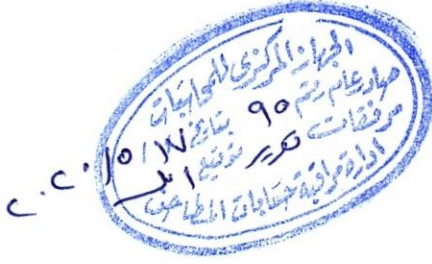 الجهاز المركزى للمحاسبات
صادر عام رقم ٩٥
بتاريخ ١٧ / ٥ / ٢٠٢٠
مرفقات تقرير توقيع
ادارة مراقبة حسابات المطاحن